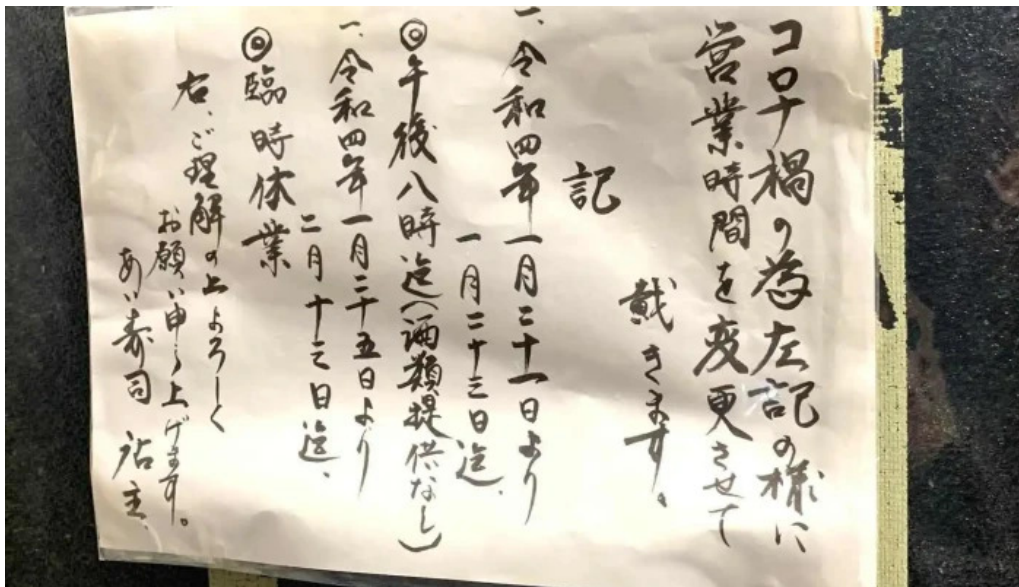 コロナ禍の為左記の様に
営業時間を変更させて
戴きます。
記
一、令和四年一月二十一日より
一月二十三日迄、
◎午後八時迄(酒類提供なし)
一、令和四年一月二十五日より
二月十三日迄、
◎臨時休業
右、ご理解の上よろしく
お願い申し上げます。
あい寿司 店主